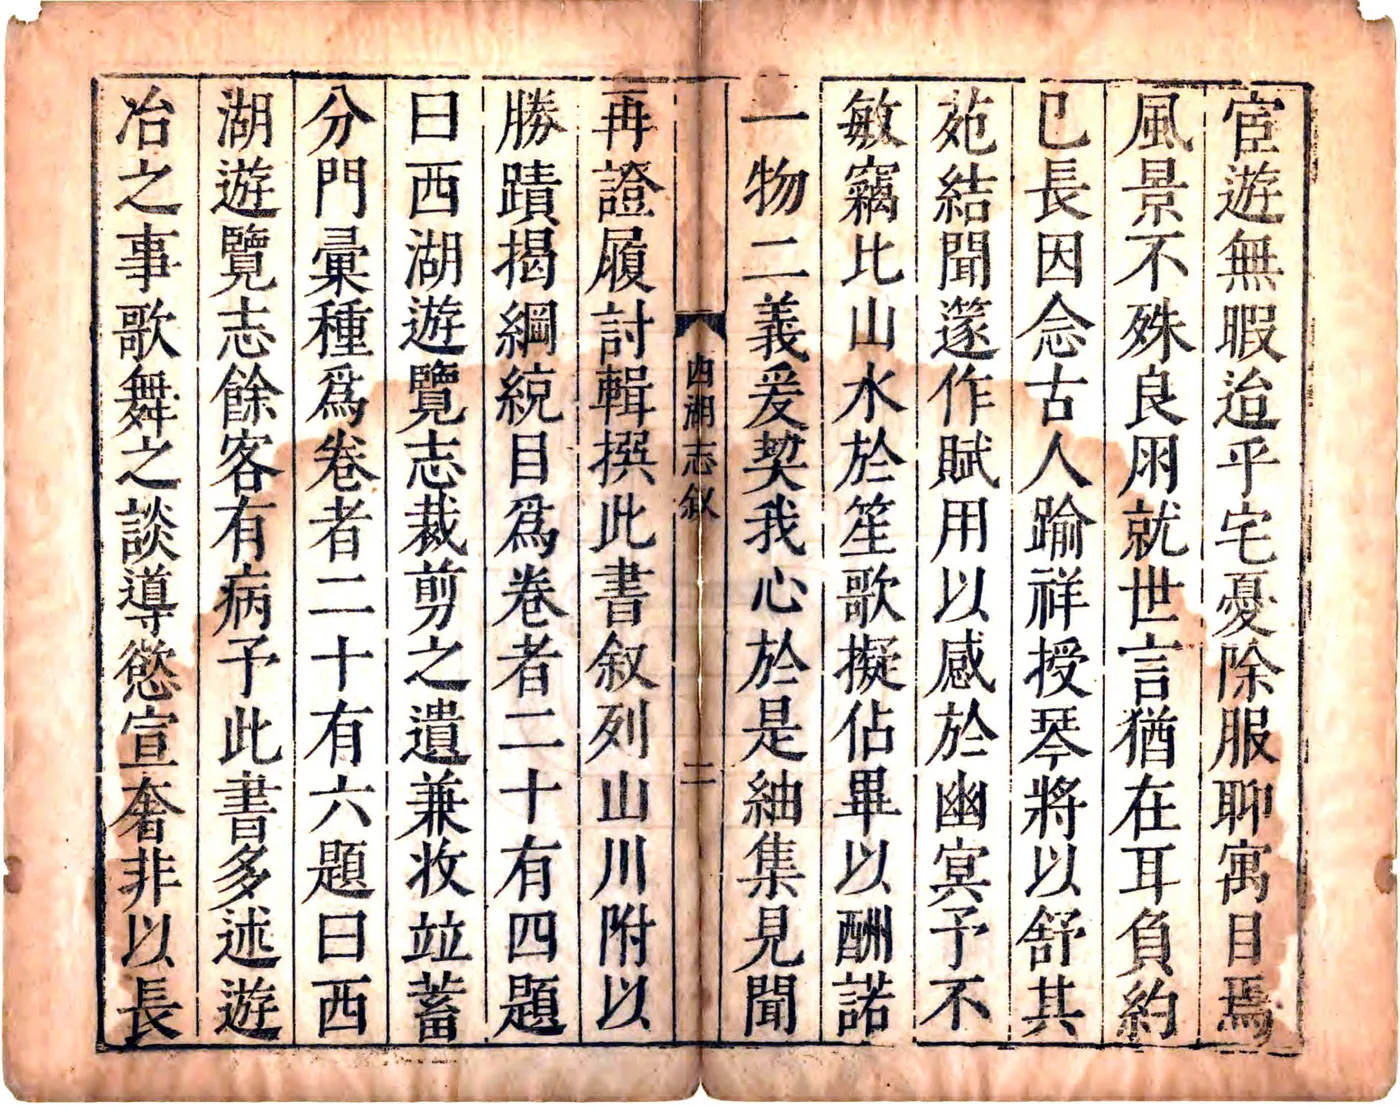 宦遊無暇迨乎宅憂除服聊寓目焉
風景不殊良朋就世言猶在耳負約
已長因念古人踰祥授琴將以舒其
菀結聞篴作賦用以感於幽冥予不
敏竊比山水於笙歌擬佔畢以酬諾
一物二義爰契我心於是紬集見聞
西湖志叙
二
再證履討輯撰此書叙列山川附以
勝蹟揭綱統目爲卷者二十有四題
曰西湖遊覽志裁剪之遺兼收竝蓄
分門彙種爲卷者二十有六題曰西
湖遊覽志餘客有病予此書多述遊
冶之事歌舞之談導慾宣奢非以長